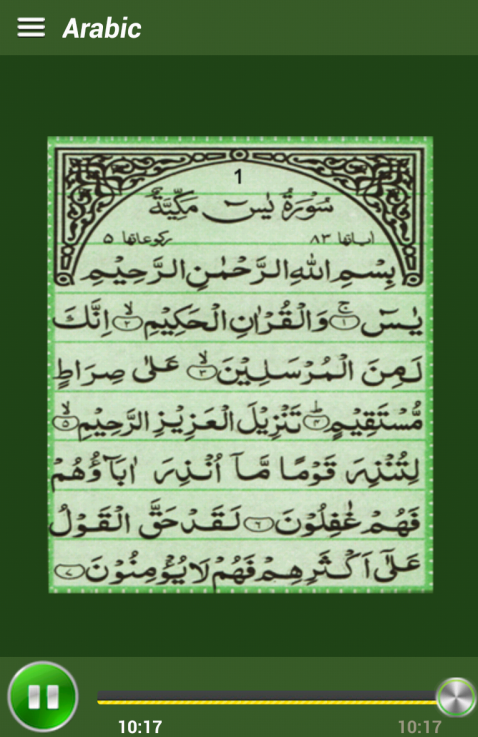 Arabic
1
سُوْرَةُ يٰسٓ مَكِّيَّةٌ
اٰیاتها ٨٣ ركوعاتها ٥
بِسْمِ اللّٰهِ الرَّحْمٰنِ الرَّحِيْمِ
يٰسٓ ۚ﴿١﴾ وَالْقُرْاٰنِ الْحَكِيْمِ ۙ﴿٢﴾ اِنَّكَ
لَمِنَ الْمُرْسَلِيْنَ ۙ﴿٣﴾ عَلٰى صِرَاطٍ
مُّسْتَقِيْمٍ ؕ﴿٤﴾ تَنْزِيْلَ الْعَزِيْزِ الرَّحِيْمِ ۙ﴿٥﴾
لِتُنْذِرَ قَوْمًا مَّاۤ اُنْذِرَ اٰبَآؤُهُمْ
فَهُمْ غٰفِلُوْنَ ﴿٦﴾ لَقَدْ حَقَّ الْقَوْلُ
عَلٰٓى اَكْثَرِهِمْ فَهُمْ لَا يُؤْمِنُوْنَ ﴿٧﴾
10:17 10:17